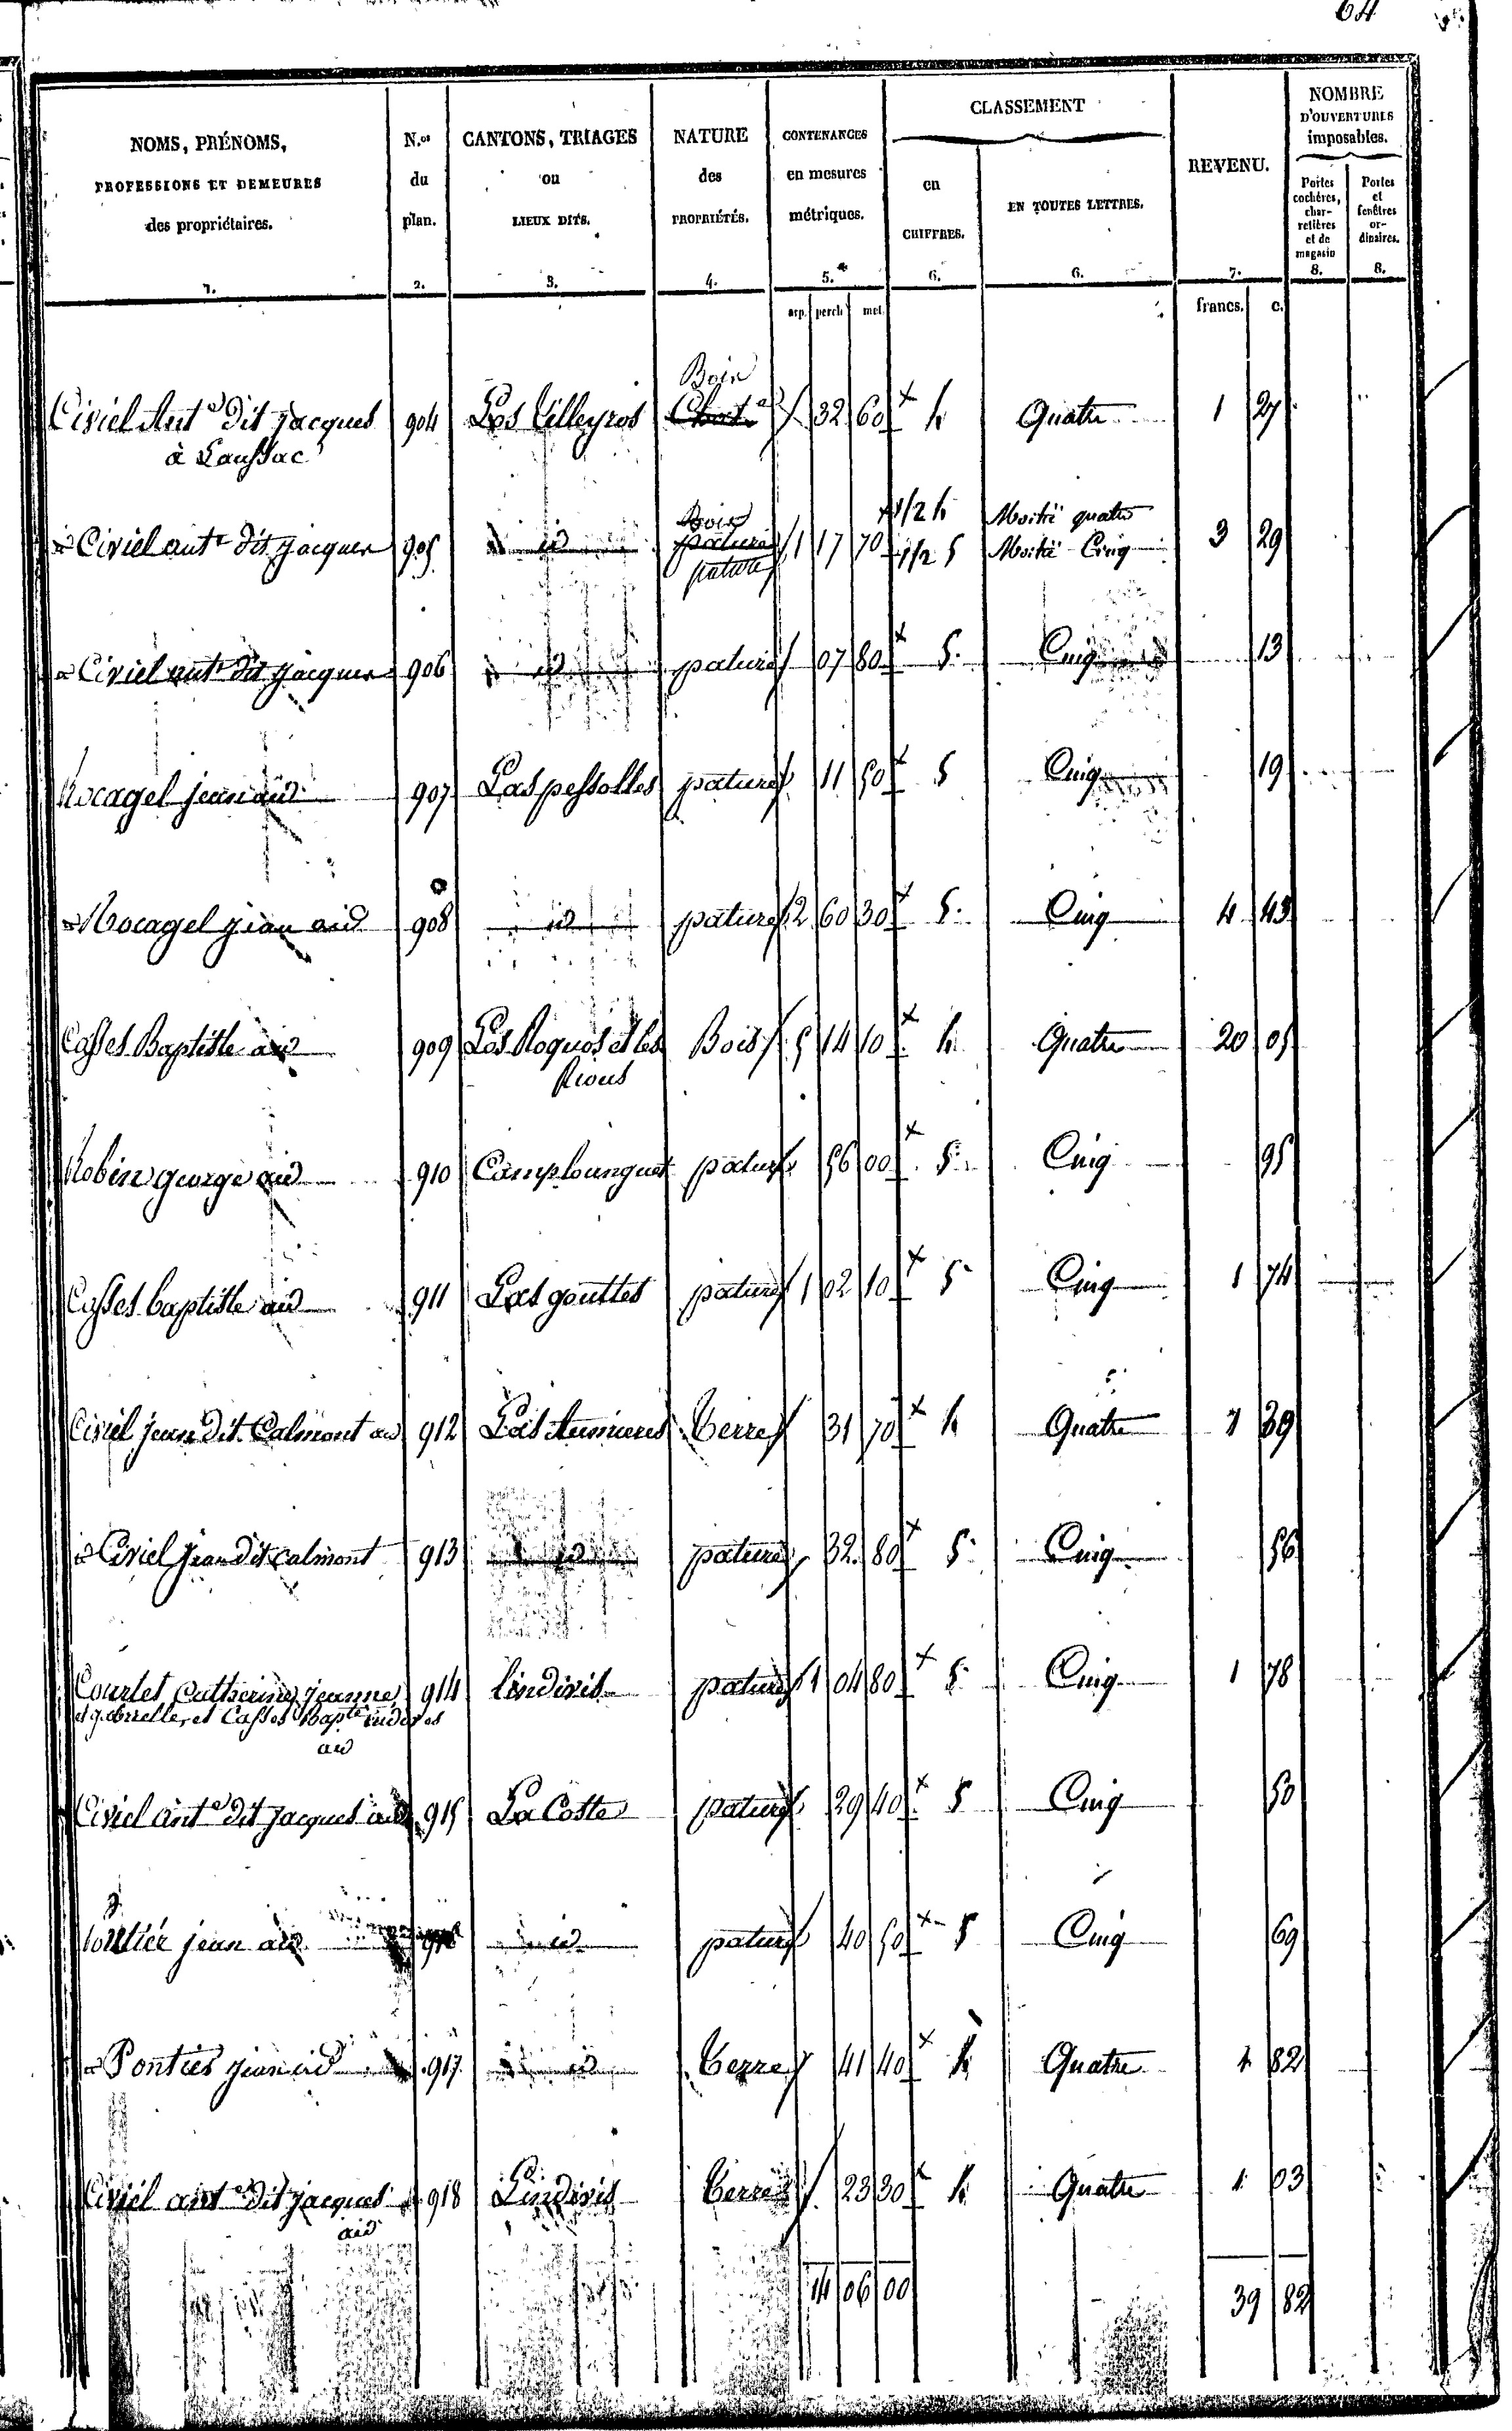 64
NOMS, PRÉNOMS, PROFESSIONS ET DEMEURES des propriétaires.
N.os du plan.
CANTONS, TRIAGES ou LIEUX DITS.
NATURE des PROPRIÉTÉS.
CONTENANCES en mesures métriques.
CLASSEMENT
en CHIFFRES.
EN TOUTES LETTRES.
REVENU.
NOMBRE D'OUVERTURES imposables.
Portes cochères, charretières et de magasin
Portes et fenêtres ordinaires.
1. 2. 3. 4. 5. 6. 6. 7. 8. 8.
arp. perch. met. francs. c.
Bois
Civiel Ant.e dit jacques 904 Las Tilleyros 32 60 4 Quatre 1 27
à Laussac
Bois 1/2 4 Moitié quatre
id Civiel ant.e dit jacques 905 id pature 1 17 70 1/2 5 Moitié Cinq 3 29
pature
id Civiel ant.e dit jacques 906 id pature 07 80 5 Cinq 13
Rocagel jean aid 907 Las pessolles pature 11 50 5 Cinq 19
id Rocagel jean aid 908 id pature 2 60 30 5 Cinq 4 43
Casses Baptiste aid 909 Los Roquos et les Bois 5 14 10 4 Quatre 20 05
Rious
Robin george aid 910 Camplounguet pature 56 00 5 Cinq 95
Casses baptiste aid 911 Las gouttes pature 1 02 10 5 Cinq 1 74
Civiel jean dit Calmont aid 912 Las Aumieres Terre 31 70 4 Quatre 1 39
id Civiel jean dit Calmont 913 id pature 32 80 5 Cinq 56
Courtet Catherine, jeanne, 914 lindivis pature 1 04 80 5 Cinq 1 78
et gabrielle, et Casses Bapte indivis
aid
Civiel ant.e dit jacques aid 915 La Coste pature 29 40 5 Cinq 50
jean aid 916 id pature 40 50 5 Cinq 69
id Ponties jean aid 917 id Terre 41 40 4 Quatre 1 82
Civiel ant.e dit jacques 918 Lindivis Terre 23 30 4 Quatre 1 03
aid
14 06 00 39 82